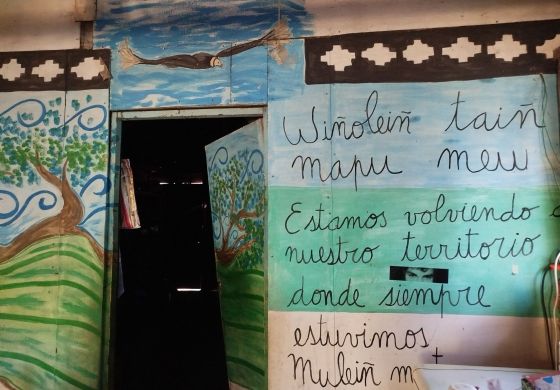 Wiñoleiñ taiñ
mapu meu
Estamos volviendo a
nuestro territorio
donde siempre
estuvimos
Muleiñ